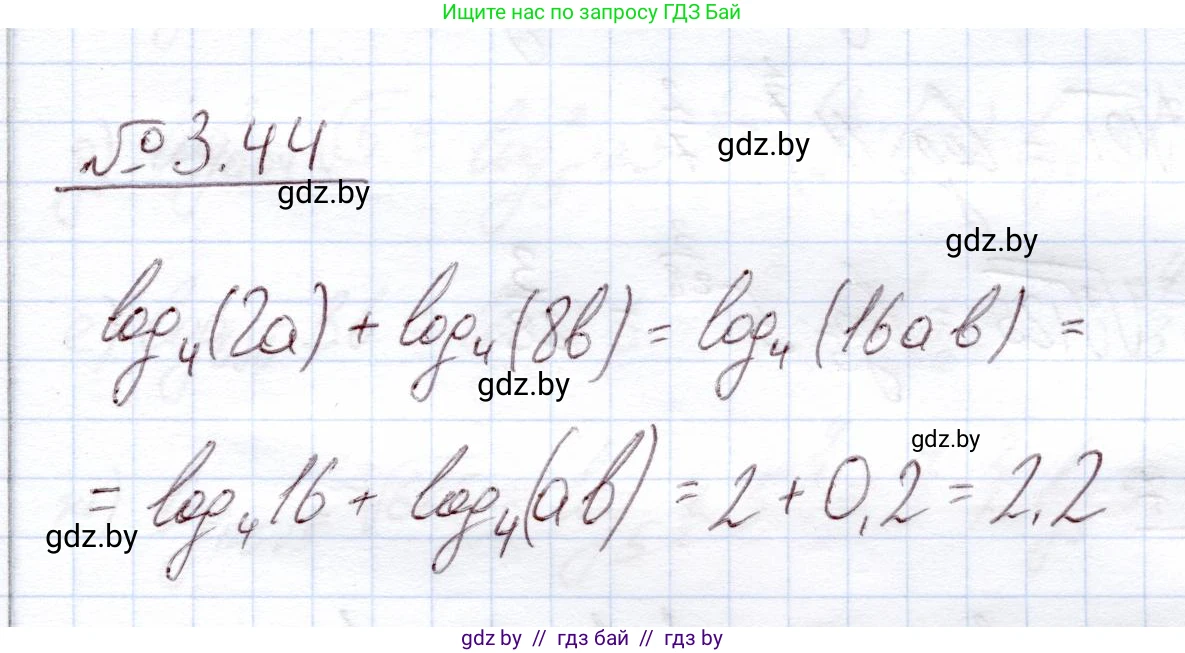 Ищите нас по запросу ГДЗ Бай
№ 3.44
gdz.by
gdz.by
gdz.by
log₄(2a) + log₄(8b) = log₄(16ab) =
gdz.by
gdz.by
= log₄16 + log₄(ab) = 2 + 0,2 = 2,2
gdz.by
gdz by // гдз бай // гдз by